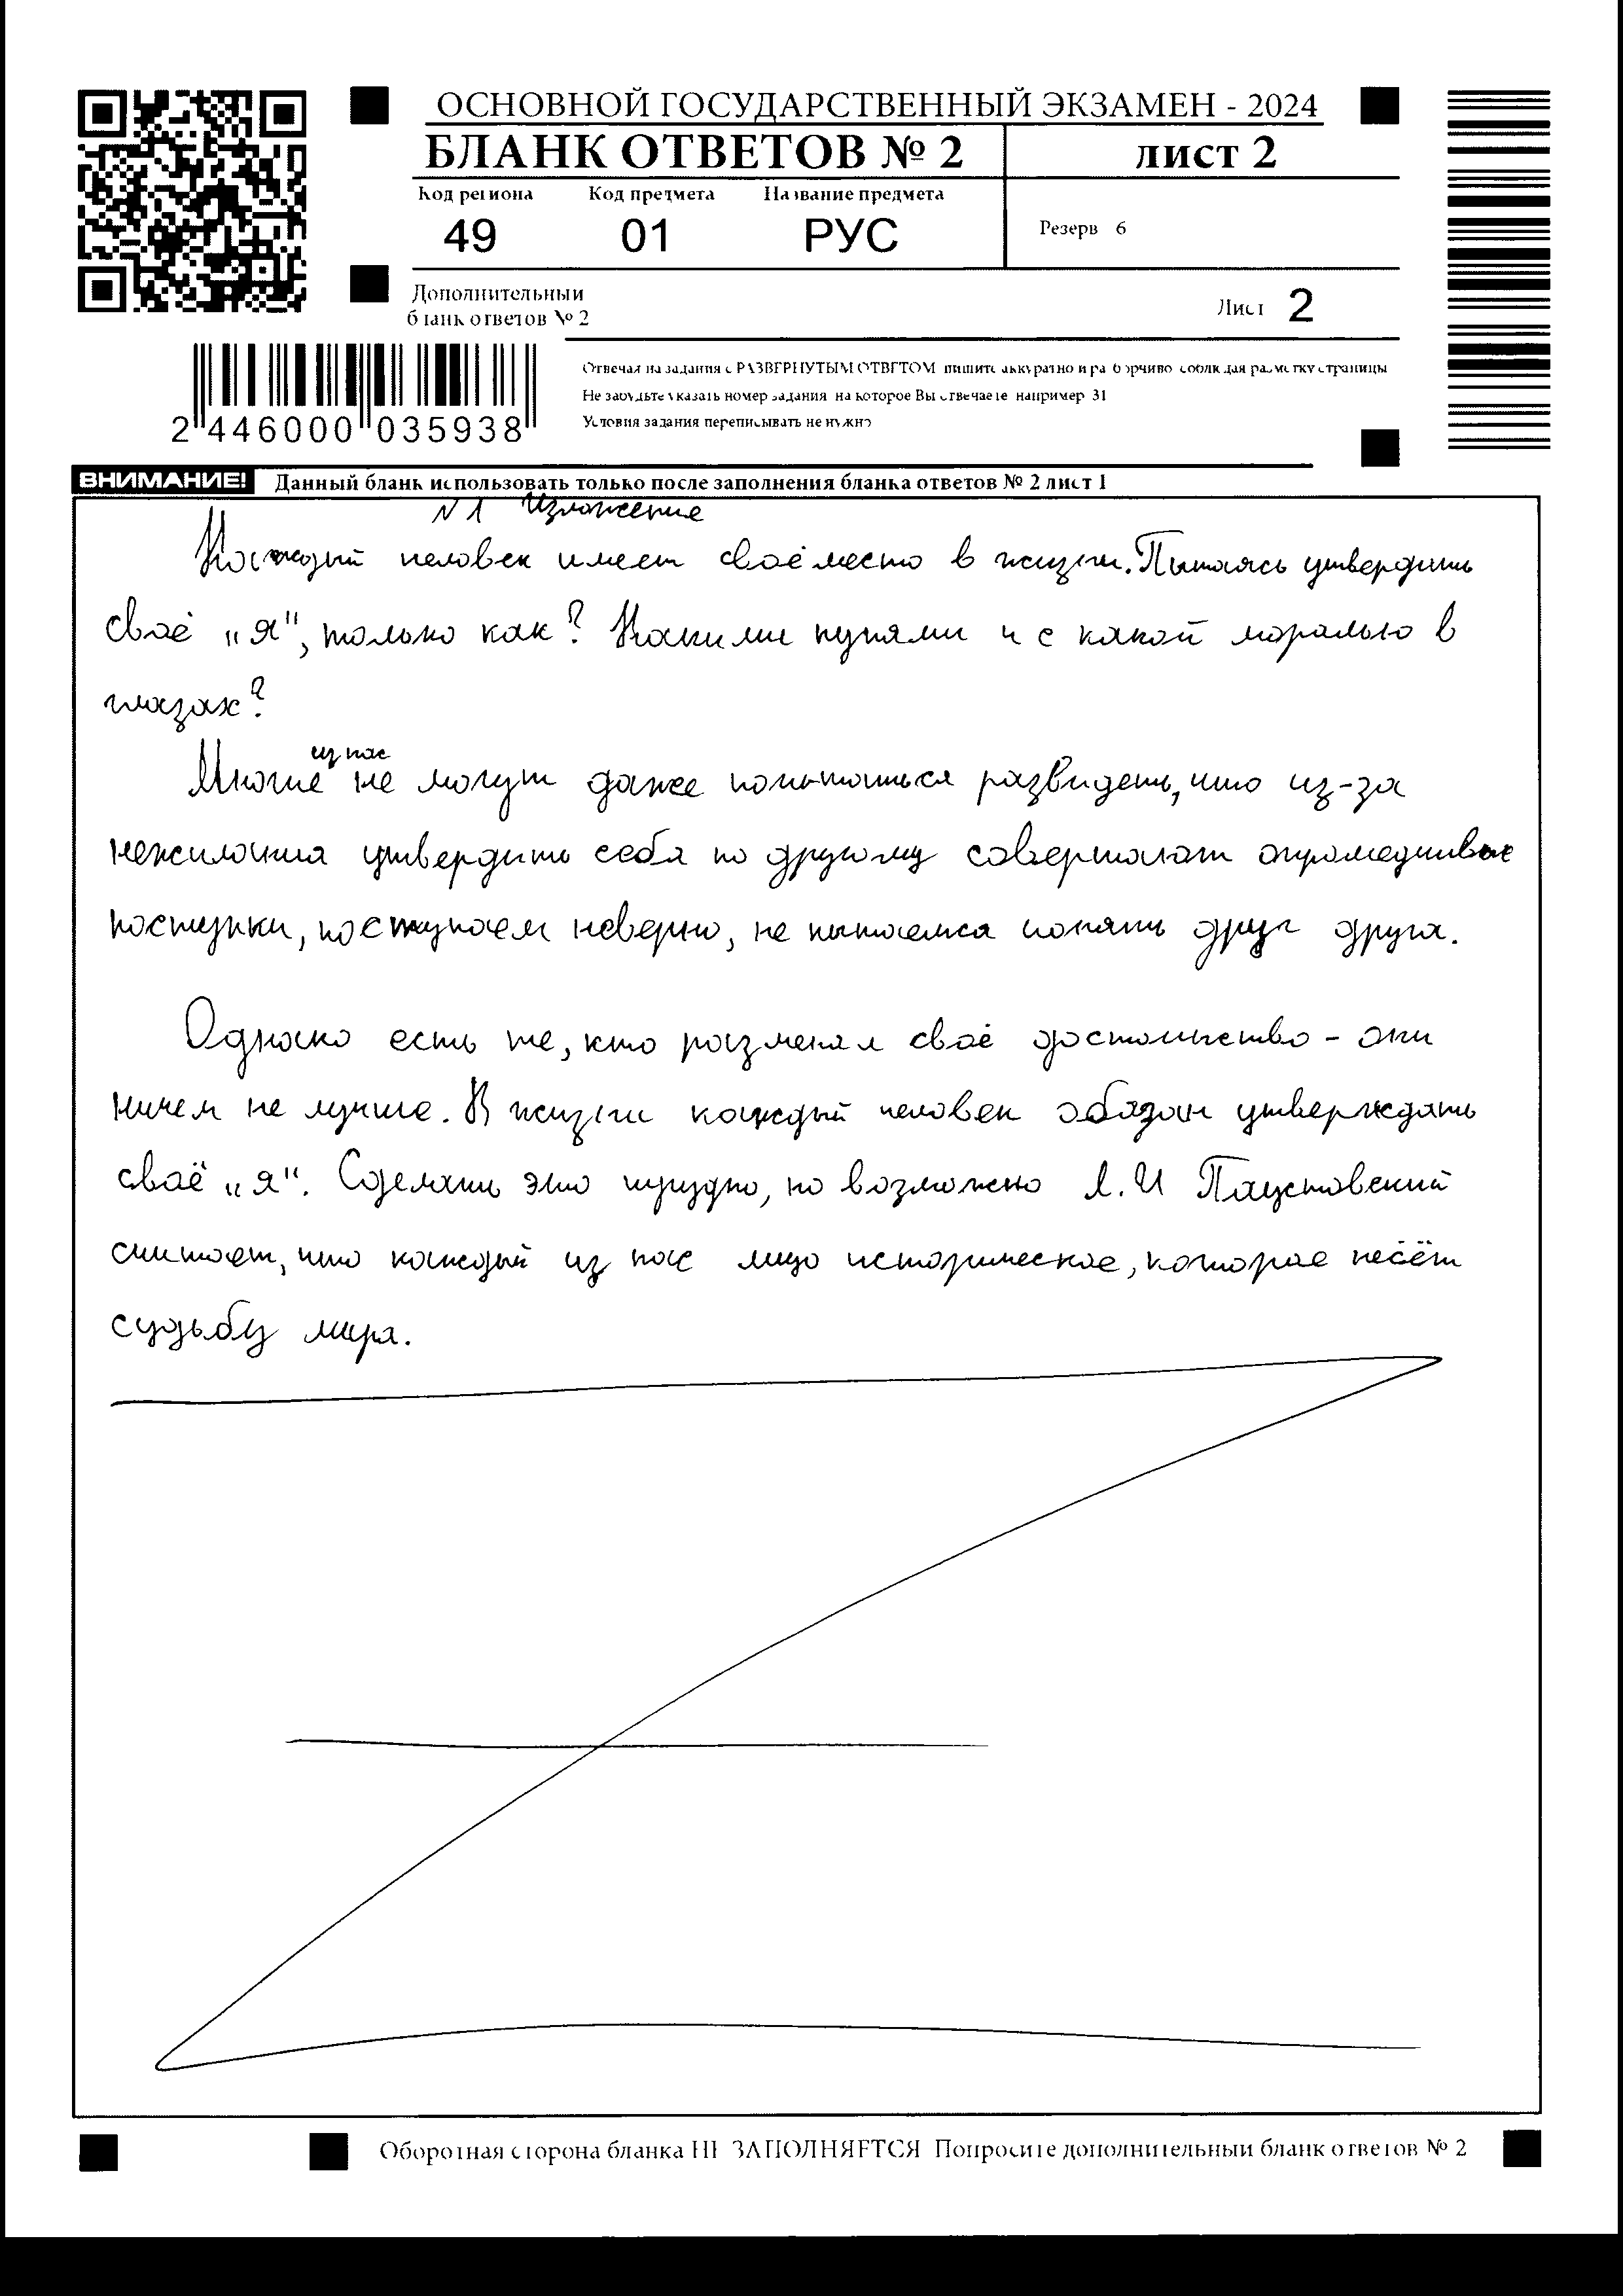 ОСНОВНОЙ ГОСУДАРСТВЕННЫЙ ЭКЗАМЕН - 2024
БЛАНК ОТВЕТОВ № 2
лист 2
Код региона Код предмета Название предмета
49 01 РУС
Резерв 6
Дополнительный
бланк ответов № 2
Лист 2
Отвечая на задания с РАЗВЕРНУТЫМ ОТВЕТОМ пишите аккуратно и разборчиво соблюдая разметку страницы
Не забудьте указать номер задания на которое Вы отвечаете например 31
Условия задания переписывать не нужно
2 446000 035938
ВНИМАНИЕ! Данный бланк использовать только после заполнения бланка ответов № 2 лист 1
N 1 Изложение
Каждый человек имеет своё место в жизни. Пытаясь утвердить
своё „Я", только как? Какими путями и с какой моралью в
глазах?
из нас
Многие не могут даже попытаться развидеть, что из-за
нежелания утвердить себя по другому совершают опромедчивые
поступки, поступаем неверно, не пытаемся понять друг друга.
Однако есть те, кто разменял своё достоинство - они
ничем не лучше. В жизни каждый человек обязан утверждать
своё „я". Сделать это трудно, но возможно Л.И Паустовский
считает, что каждый из нас лицо историческое, которое несёт
судьбу мира.
Оборотная сторона бланка НЕ ЗАПОЛНЯЕТСЯ Попросите дополнительный бланк ответов № 2